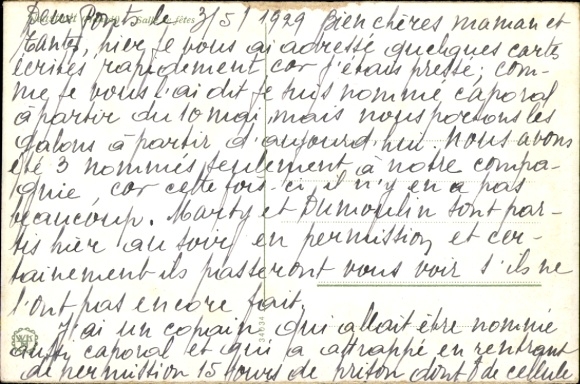 Deux Ponts le 3/5/1929 Bien chères maman et
tantes, hier je vous ai adressé quelques cartes
écrites rapidement car j'étais pressé; com-
me je vous l'ai dit je suis nommé caporal
à partir du 10 mai, mais nous portons les
galons à partir d'aujourd'hui. Nous avons
été 3 nommés seulement à notre compa-
gnie, car cette fois-ci, il n'y en a pas
beaucoup. Marty et Dumoulin sont par-
tis hier au soir en permission et cer-
tainement ils passeront vous voir s'ils ne
l'ont pas encore fait.
J'ai un copain qui allait être nommé
aussi caporal et qui a attrappé en rentrant
de permission 15 jours de prison dont 8 de cellule